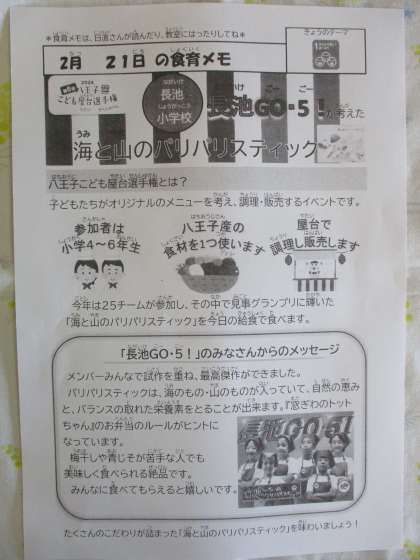 ＊食育メモは、日直さんが読んだり、教室にはったりしてね＊
きょうのテーマ
2月 21日 の食育メモ
2024
八王子
こども屋台選手権
長池
小学校
長池GO・5！が考えた
海と山のパリパリスティック
八王子こども屋台選手権とは？
子どもたちがオリジナルのメニューを考え、調理・販売するイベントです。
参加者は
小学4～6年生
八王子産の
食材を1つ使います
屋台で
調理し販売します
今年は25チームが参加し、その中で見事グランプリに輝いた
「海と山のパリパリスティック」を今日の給食で食べます。
「長池GO・5！」のみなさんからのメッセージ
メンバーみんなで試作を重ね、最高傑作ができました。
パリパリスティックは、海のもの・山のものが入っていて、自然の恵み
と、バランスの取れた栄養素をとることが出来ます。『窓ぎわのトット
ちゃん』のお弁当のルールがヒントに
なっています。
梅干しや青じそが苦手な人でも
美味しく食べられる絶品です。
みんなに食べてもらえると嬉しいです。
長池GO！5！
たくさんのこだわりが詰まった「海と山のパリパリスティック」を味わいましょう！